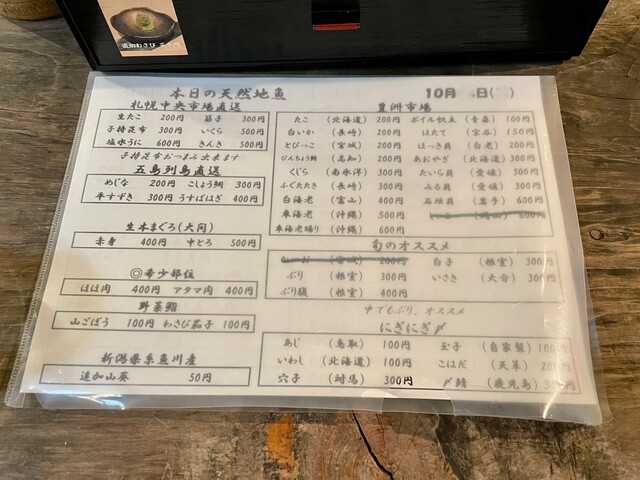 追加わさび 五十円
本日の天然地魚
10月 日( )
札幌中央市場直送
生たこ 200円 筋子 300円
子持昆布 300円 いくら 500円
塩水うに 600円 きんき 500円
子持昆布おつまみ出来ます
五島列島直送
めじな 200円 こしょう鯛 300円
平すずき 300円 うすばはぎ 400円
生本まぐろ(大間)
赤身 400円 中とろ 500円
◎希少部位
ほほ肉 400円 アタマ肉 400円
野菜鮨
山ごぼう 100円 わさび茄子 100円
新潟県糸魚川産
追加山葵 50円
豊洲市場
たこ (北海道) 200円 ボイル帆立 (青森) 100円
白いか (長崎) 200円 ほたて (宗谷) 150円
とびっこ (宮城) 200円 ほっき貝 (白老) 200円
びんちょう鮪 (高知) 200円 あおやぎ (北海道) 300円
くじら (南氷洋) 300円 たいら貝 (愛媛) 300円
ふぐたたき (長崎) 300円 みる貝 (愛媛) 300円
白海老 (富山) 400円 石垣貝 (岩手) 600円
車海老 (沖縄) 500円
車海老踊り (沖縄) 600円
旬のオススメ
200円 白子 (根室) 300円
ぶり (根室) 300円 いさき (大分) 300円
ぶり腹 (根室) 400円
中でもぶり、オススメ
にぎにぎ〆
あじ (鳥取) 100円 玉子 (自家製) 100円
いわし (北海道) 100円 こはだ (天草) 200円
穴子 (対馬) 300円 〆鯖 (鹿児島) 300円